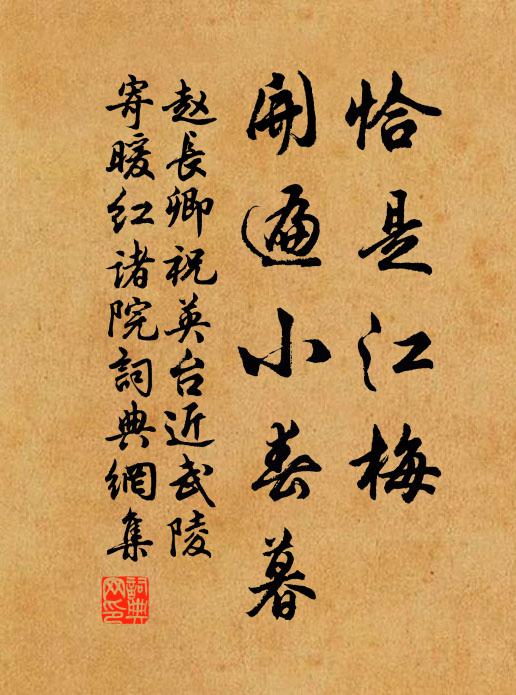 恰是江梅
開遍小春暮
赵長卿祝英台近武陵
寄暖红诸院詞典網集
詞典網印